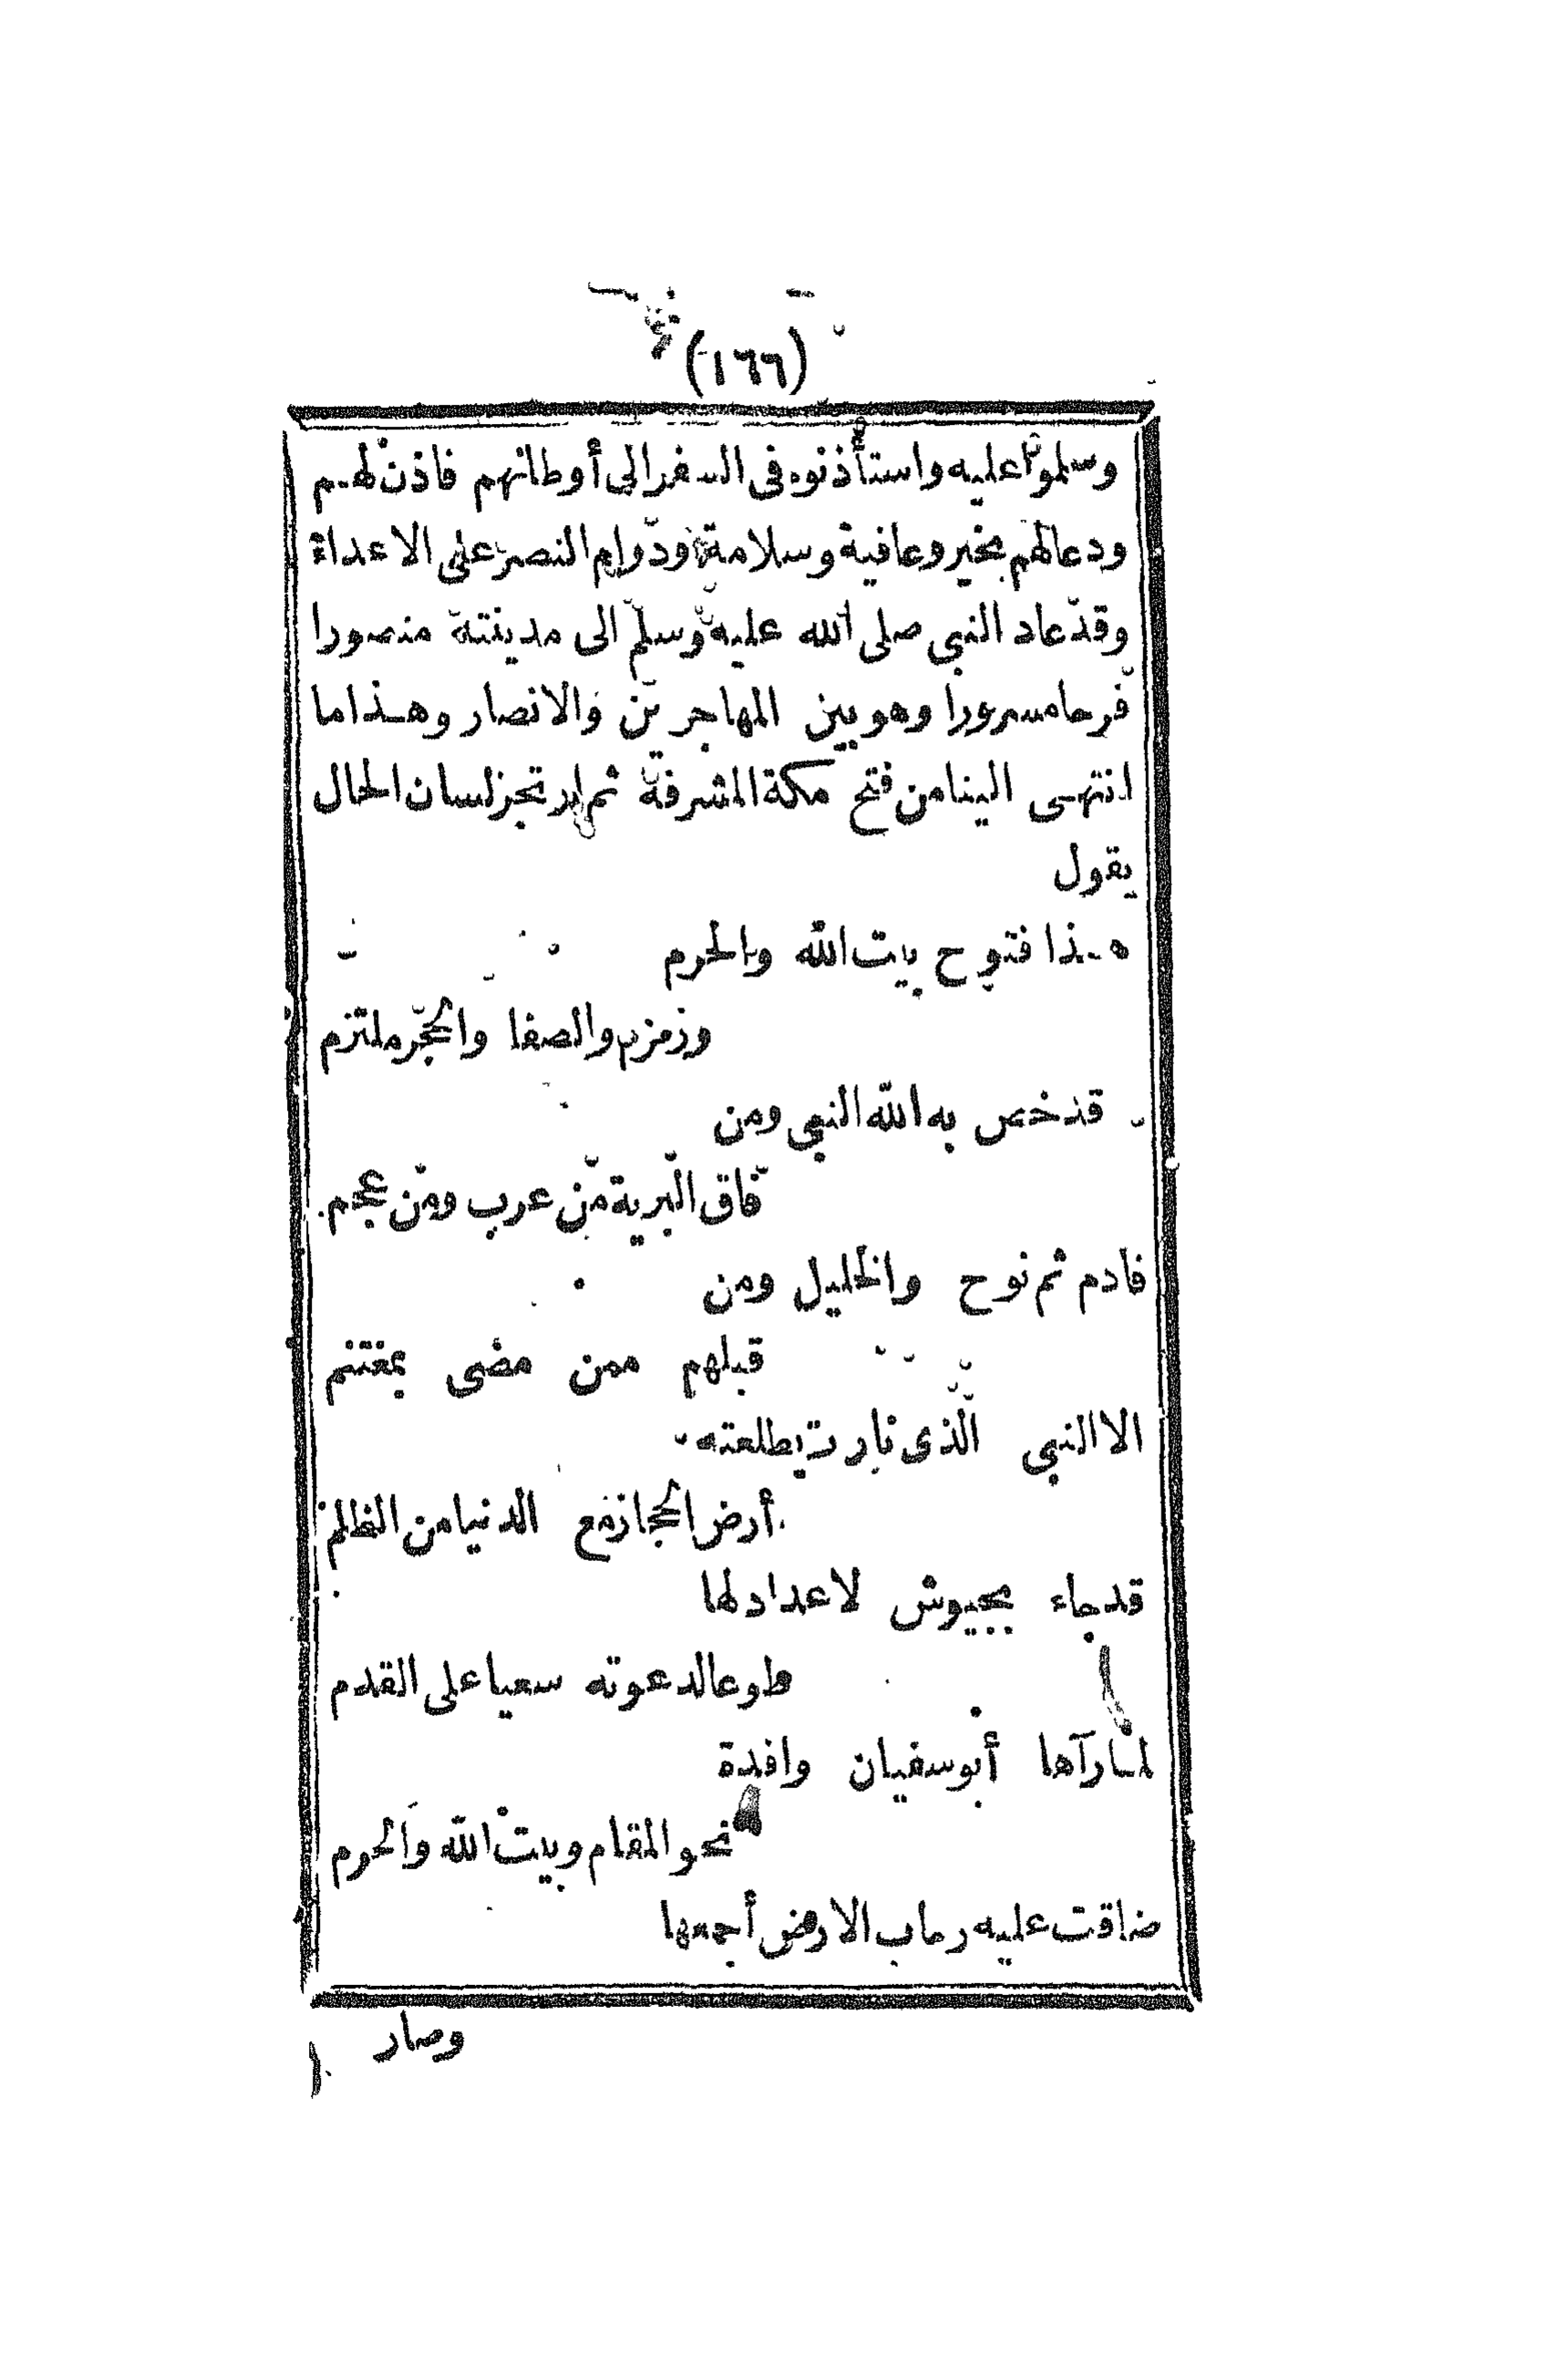 (١٦٦)
وسلموا عليه واستأذنوه فى السفر الى أوطانهم فاذن لهم
ودعا لهم بخير وعافية وسلامة ودوام النصر على الاعداء
وقد عاد النبى صلى الله عليه وسلم الى مدينته منصورا
فرحا مسرورا وهو بين المهاجرين والانصار وهذا ما
انتهى الينا من فتح مكة المشرفة ثم ارتجز لسان الحال
يقول
هذا فتوح بيت الله والحرم
وزمزم والصفا والحجر ملتزم
قد خص به الله النبى ومن
فاق البرية من عرب ومن عجم
فادم ثم نوح والخليل ومن
قبلهم ممن مضى بمغتنم
الا النبى الذى نارت بطلعته
أرض الحجاز مع الدنيا من الظلم
قد جاء بجيوش لا عداد لها
طوعا لدعوته سعيا على القدم
لما رآها أبو سفيان وافدة
نحو المقام وبيت الله والحرم
ضاقت عليه رحاب الارض أجمعها
وصار